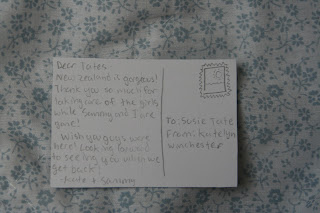 Dear Tates,
New Zealand is gorgeous!
Thank you so much for
taking care of the girls
while Sammy and I are
gone!
Wish you guys were
here! Looking forward
to seeing you when we
get back!
+ Sammy
To: Susie Tate
From: Katelyn
Winchester